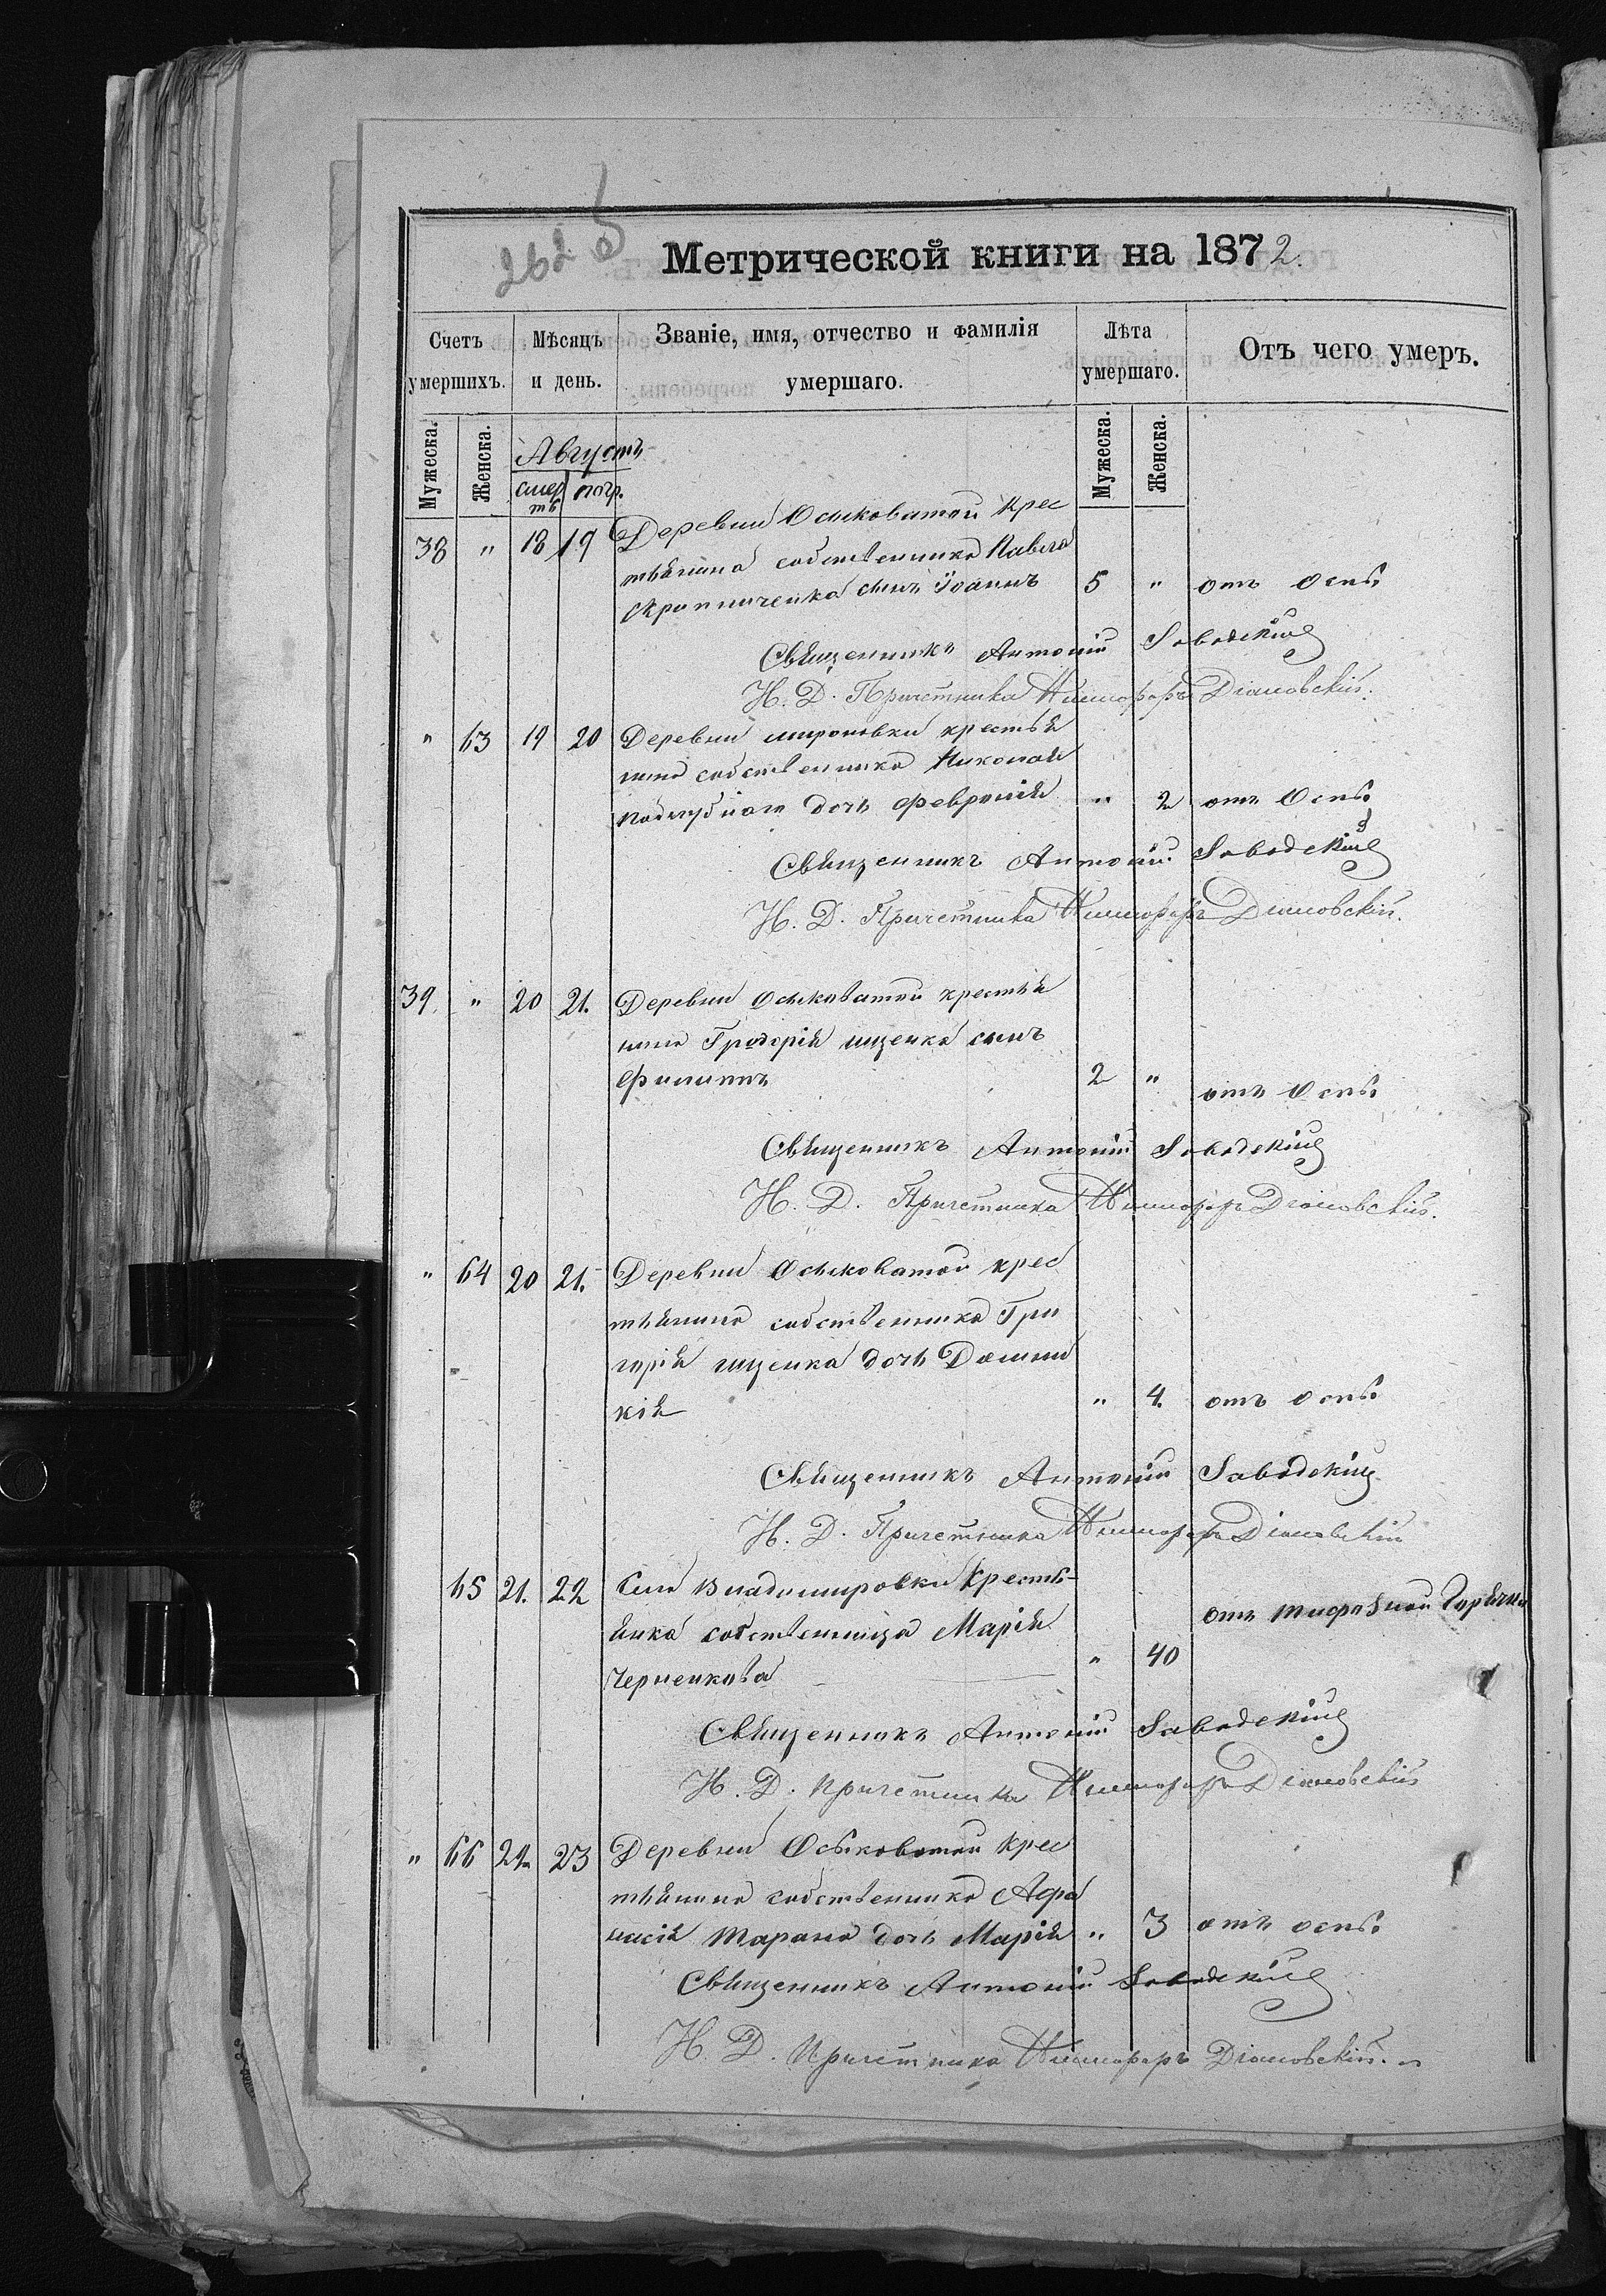 262
Метрической книги на 1872.
Счетъ умершихъ. Мѣсяцъ и день. Званіе, имя, отчество и фамилія умершаго. Лѣта умершаго. Отъ чего умеръ.
Мужеска. Женска. Августъ Мужеска. Женска.
смерть погр.
38 " 18 19 Деревни Осыковатой крес
тьянина собственника Павла
Скрипниченка сынъ Іоаннъ 5 " отъ оспы
Священникъ Антоній Заводскій
И. Д. Причетника Никифоръ Діановскій.
" 63 19 20 Деревни мироновки крестья
нина собственника Николая
Поддубнаго дочь Февронія " 2 отъ Оспы
Священникъ Антоній Заводскій
И. Д. Причетника Никифоръ Діановскій.
39 " 20 21. Деревни Осыковатой крестья
нина Григорія ищенка сынъ
Филиппъ 2 " отъ Оспы
Священникъ Антоній Заводскій
И. Д. Причетника Никифоръ Діановскій.
" 64 20 21. Деревни Осыковатой крес
тьянина собственника Гри
горія ищенка дочь Домни
кія " 4. отъ оспы
Священникъ Антоній Заводскій
И. Д. Причетника Никифоръ Діановскій
65 21. 22 Села Владимировки Кресть-
янка собственница Марія отъ тифозной Горячки
Черненкова " 40
Священникъ Антоній Заводскій
И. Д. Причетника Никифоръ Діановскій
" 66 23 Деревни Осыковатой Крес
тьянина собственника Афа
насія Тарана дочь Марія " 3 отъ оспы
Священникъ Антоній Заводскій
И. Д. Причетника Никифоръ Діановскій.